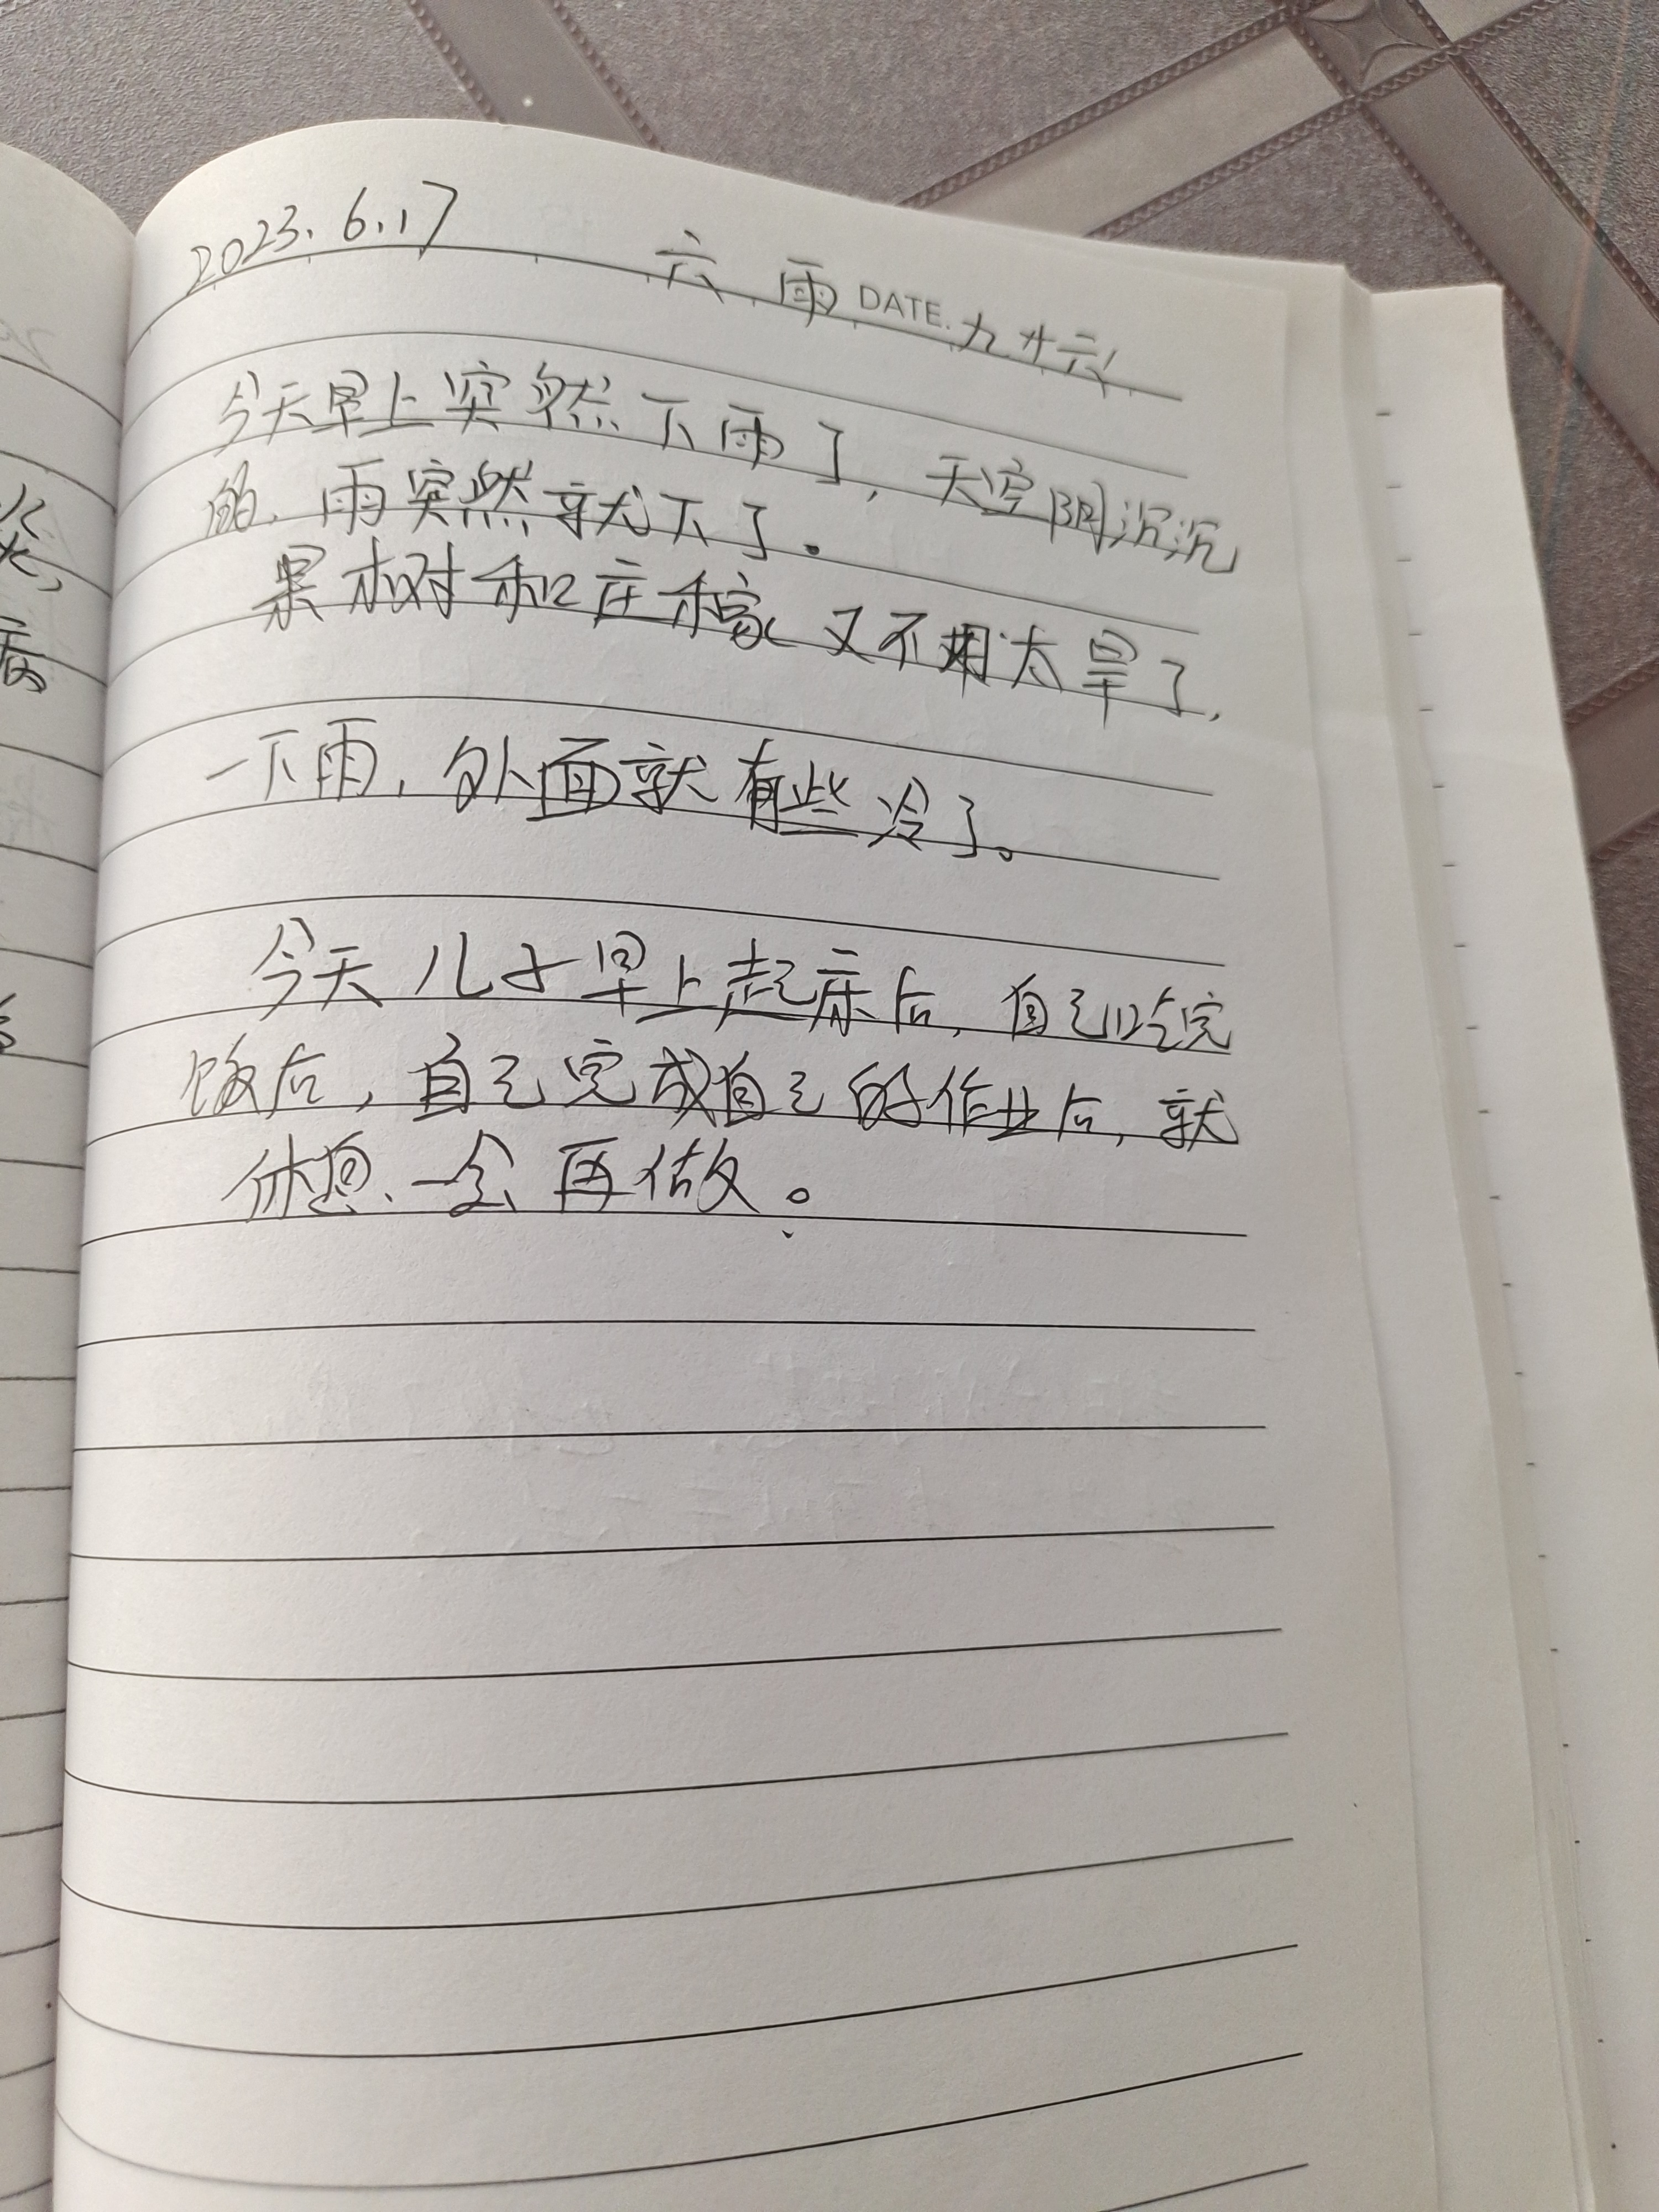 2023.6.17 六 雨 DATE. 九十六
今天早上突然下雨了，天空阴沉沉
的，雨突然就下了。
果树和庄稼又不用太旱了，
一下雨，外面就有些冷了。
今天儿子早上起床后，自己吃完
饭后，自己完成自己的作业后，就
休息、一会再做。